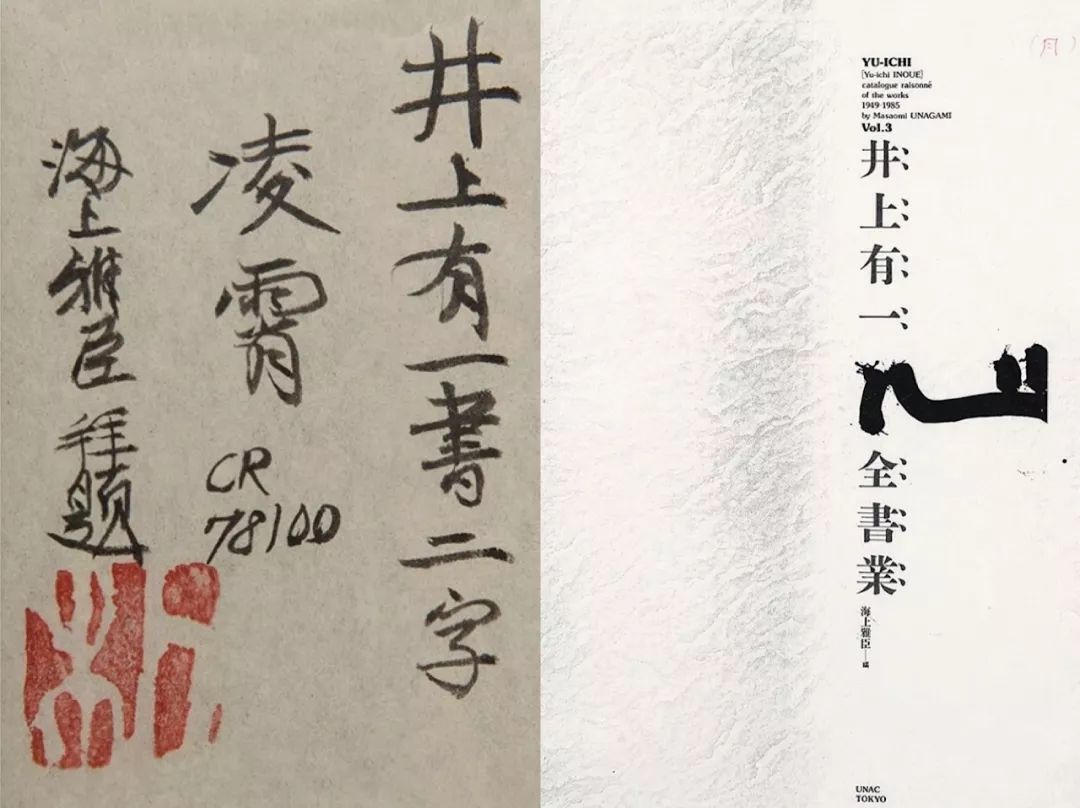 井上有一書二字
凌霄
CR
78100
海上雅臣 拜題
(月)
YU-ICHI
[Yu-ichi INOUE]
catalogue raisonné
of the works
1949-1985
by Masaomi UNAGAMI
Vol.3
井上有一全書業
海上雅臣—編
UNAC
TOKYO